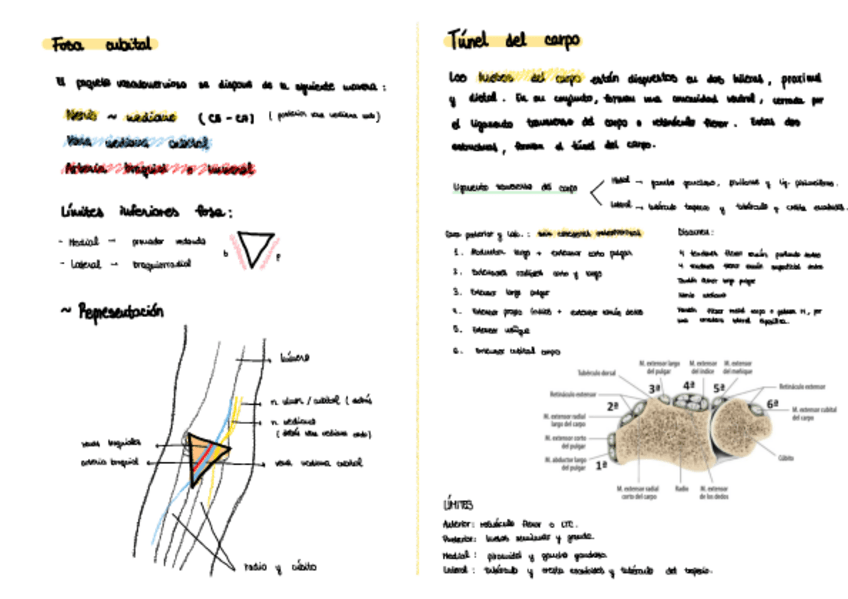 Fosa cubital
El paquete vasculonervioso se dispone de la siguiente manera:
Nervio ~ mediano (C8 - C7) (posterior vena mediana codo)
Vena mediana cubital
Arteria braquial o humeral
Límites inferiores fosa:
- Medial → pronador redondo
- Lateral → braquiorradial
~ Representación
húmero
n. ulnar / cubital (detrás
n. mediano
(detrás vena mediana codo)
venas braquiales
arteria braquial
vena mediana cubital
radio y cúbito
Túnel del carpo
Los huesos del carpo están dispuestos en dos hileras, proximal
y distal. En su conjunto, forman una concavidad ventral, cerrada por
el ligamento transverso del carpo o retináculo flexor. Estas dos
estructuras, forman el túnel del carpo.
Ligamento transverso del carpo
Medial → gancho ganchoso, pisiforme y lig.
Lateral → tubérculo trapecio y tubérculo y cresta escafoides.
Cara posterior y lab.: seis correderas osteofibrosas
1. Abductor largo + extensor corto pulgar
2. Extensores radiales corto y largo
3. Extensor largo pulgar
4. Extensor propio índice + extensor común dedos
5. Extensor meñique
6. Extensor cubital carpo
4 tendones flexor común profundo dedos
4 tendones flexor común superficial dedos
Tendón flexor largo pulgar
Nervio mediano
Tubérculo dorsal
M. extensor largo del pulgar
M. extensor del índice
M. extensor del meñique
Retináculo extensor
Retináculo extensor
3ª 4ª 5ª
2ª
6ª
M. extensor cubital del carpo
M. extensor radial largo del carpo
M. extensor corto del pulgar
M. abductor largo del pulgar
1ª
Cúbito
M. extensor radial corto del carpo
Radio
M. extensor de los dedos
LÍMITES
Anterior: retináculo flexor o LTC.
Posterior: huesos semilunar y grande.
Medial: piramidal y gancho ganchoso.
Lateral: tubérculo y cresta escafoides y tubérculo del trapecio.